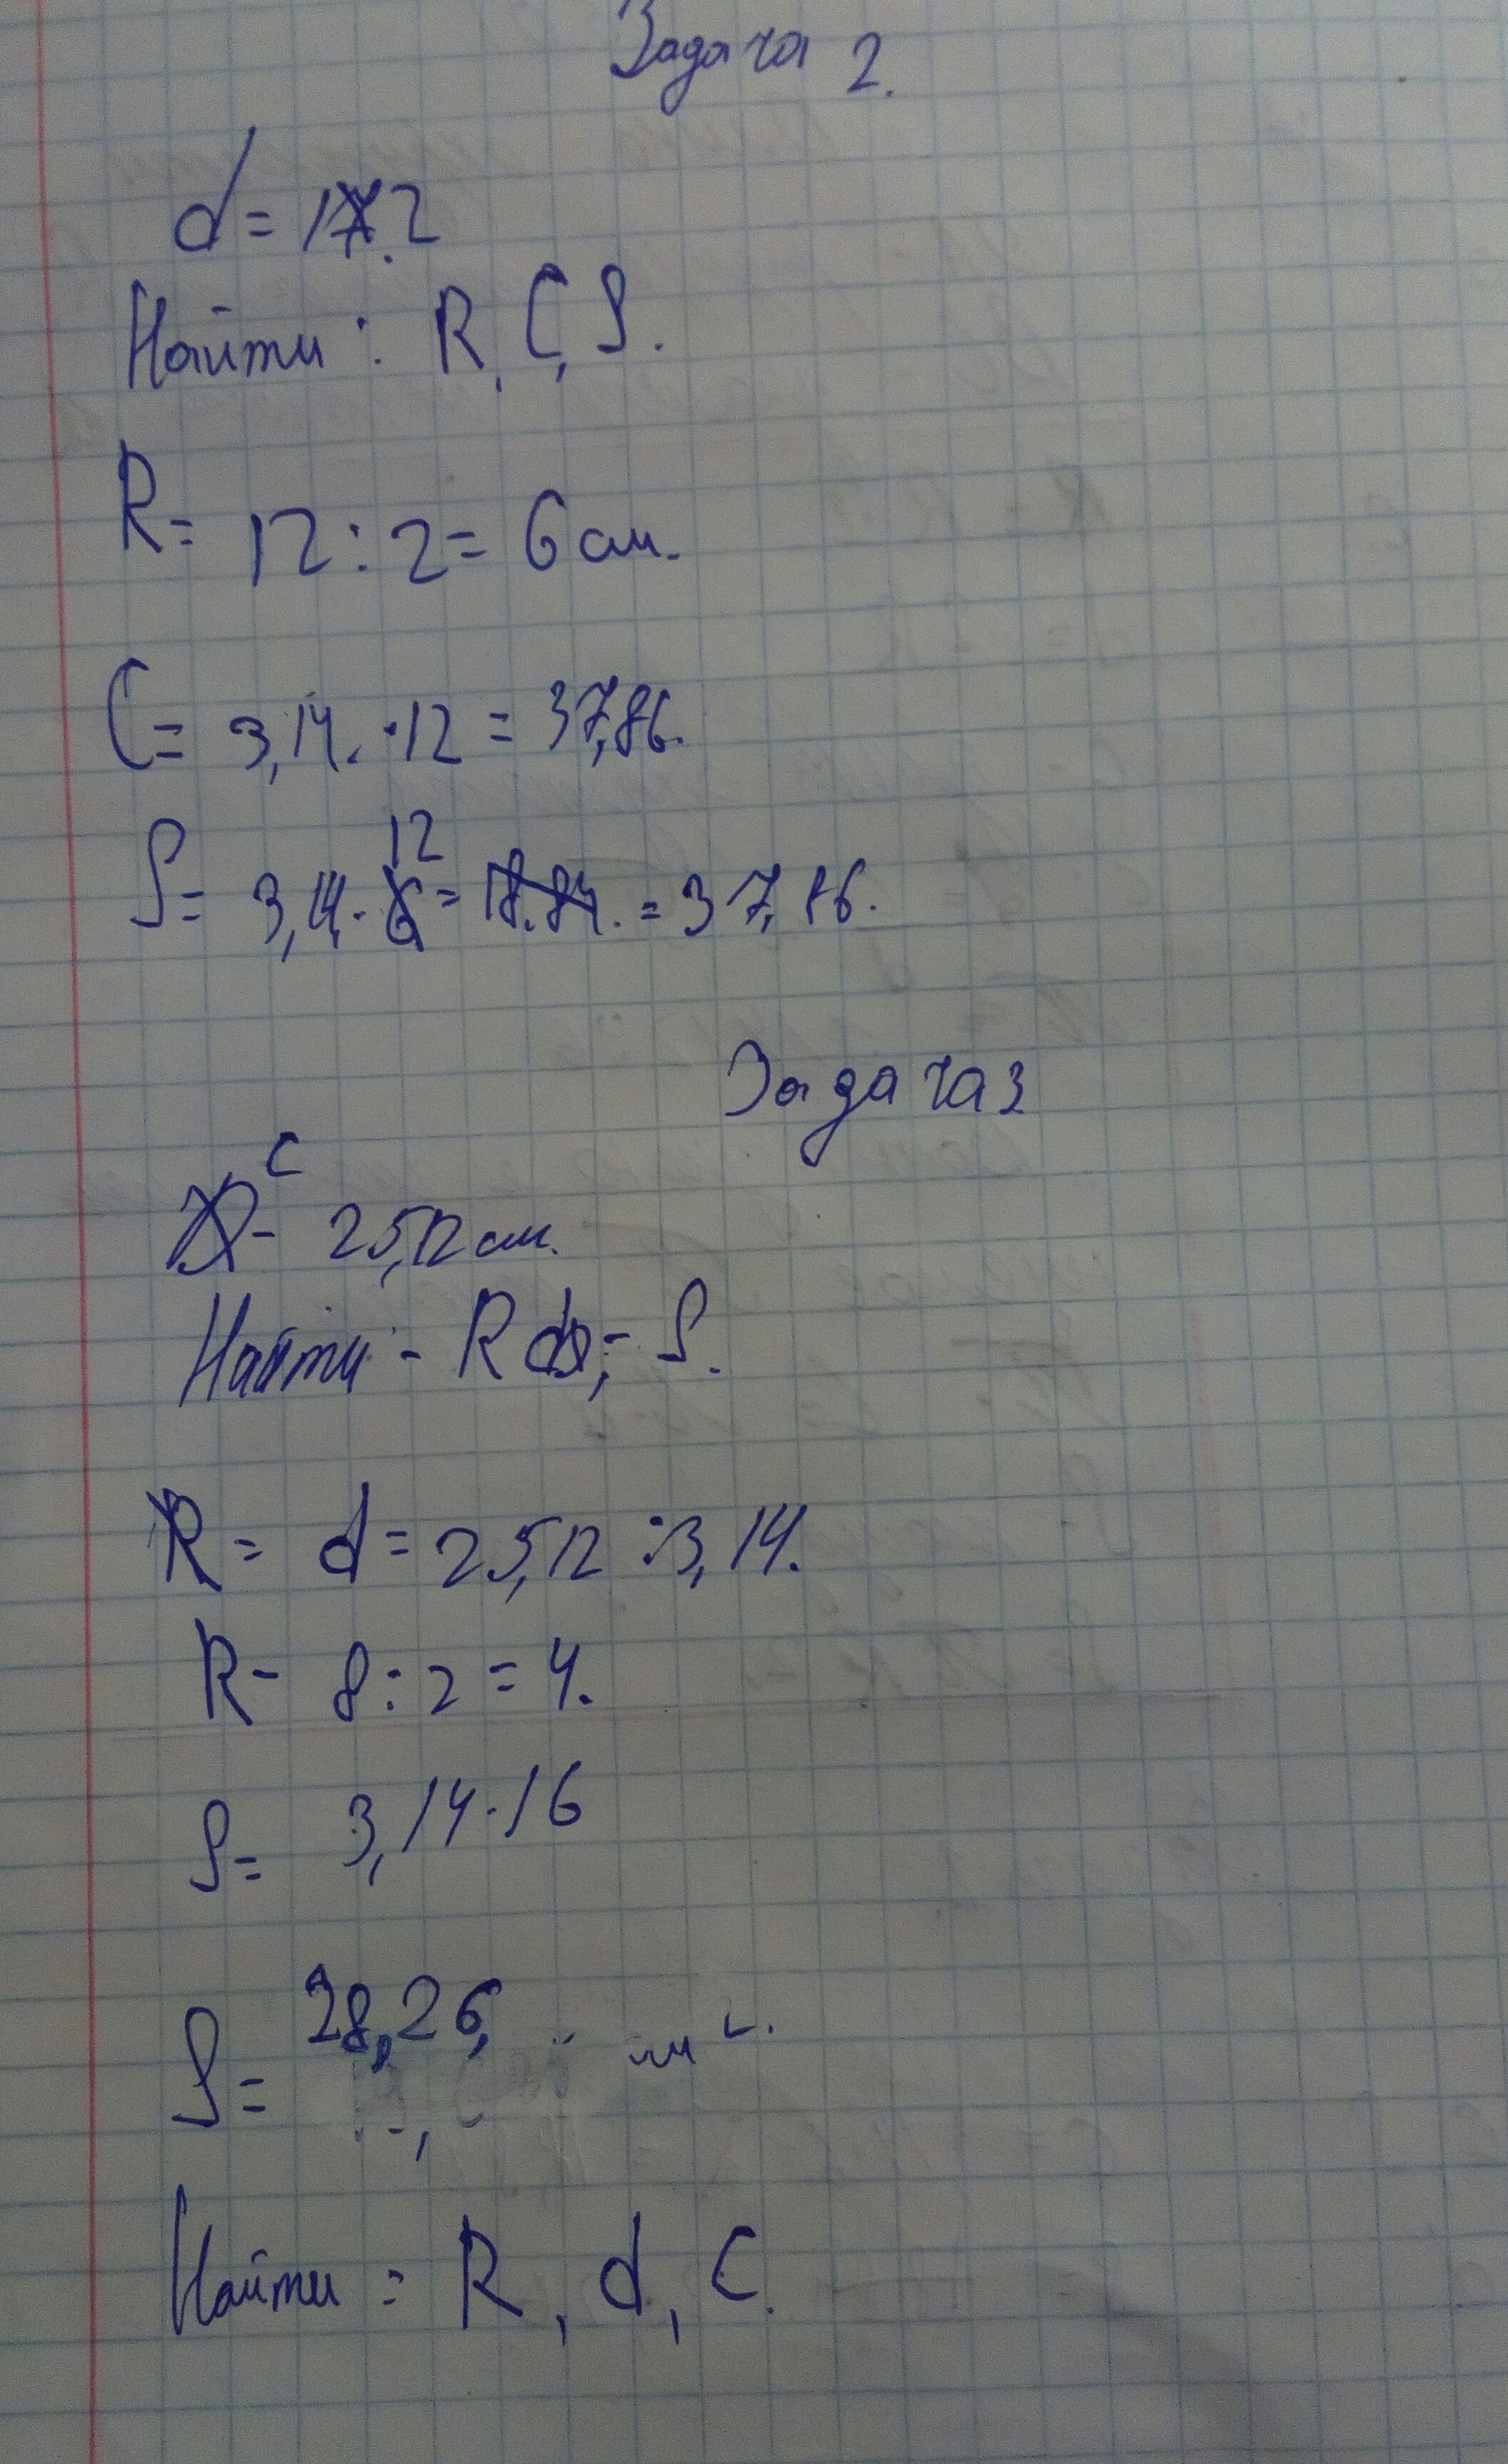 Задача 2.
d = 12
Найти: R, C, S.
R = 12 : 2 = 6 см.
C = 3,14. · 12 = 37,86.
12
S = 3,14 · 6 = 18.84. = 37,86.
Задача 3
C
- 25,12 см.
Найти - R d; - S.
R = d = 25,12 : 3,14.
R - 8 : 2 = 4.
S = 3,14 · 16
S = 28,26,
Найти = R, d, C.